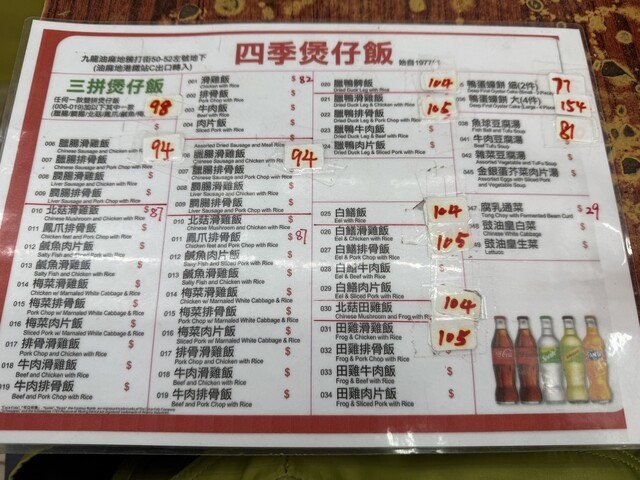 四季煲仔飯
始自1977
九龍油麻地鴉打街50-52左號地下
(油麻地港鐵站C出口轉入)
三拼煲仔飯
任何一款雙拼煲仔飯
98
94
006 臘腸滑雞飯
Chinese Sausage and Chicken with Rice
007 臘腸排骨飯
008 膶腸滑雞飯
Liver Sausage and Chicken with Rice
009 膶腸排骨飯
Liver Sausage and Pork Chop with Rice
010 北菇滑雞飯 $81
Chinese Mushroom and Chicken with Rice
011 鳳爪排骨飯 $
Chicken feet and Pork Chop with Rice
012 鹹魚肉片飯 $
013 鹹魚滑雞飯 $
Salty Fish and Chicken with Rice
014 梅菜滑雞飯 $
015 梅菜排骨飯 $
016 梅菜肉片飯 $
017 排骨滑雞飯 $
Pork Chop and Chicken with Rice
018 牛肉滑雞飯 $
Beef and Chicken with Rice
019 牛肉排骨飯 $
Beef and Pork Chop with Rice
001 滑雞飯 $82
Chicken with Rice
002 排骨飯 $
Pork Chop with Rice
003 牛肉飯 $
Beef with Rice
004 肉片飯 $
Sliced Pork with Rice
Assorted Dried Sausage and Meat Rice
94
臘腸滑雞飯
臘腸排骨飯
膶腸滑雞飯
Liver Sausage and Chicken with Rice
009 膶腸排骨飯
Liver Sausage and Pork Chop with Rice
010 北菇滑雞飯 $
Chinese Mushroom and Chicken with Rice
011 鳳爪排骨飯 $81
Chicken feet and Pork Chop with Rice
012 鹹魚肉片飯 $
Salty Fish and Sliced Pork with Rice
013 鹹魚滑雞飯 $
Salty Fish and Chicken with Rice
014 梅菜滑雞飯 $
015 梅菜排骨飯 $
016 梅菜肉片飯 $
017 排骨滑雞飯 $
Pork Chop and Chicken with Rice
018 牛肉滑雞飯 $
Beef and Chicken with Rice
019 牛肉排骨飯 $
Beef and Pork Chop with Rice
020 臘鴨髀飯
104
Dried Duck Leg with Rice
021 臘鴨滑雞飯
105
Dried Duck Leg & Chicken with Rice
022 臘鴨排骨飯
Dried Duck Leg & Pork Chop with Rice
臘鴨牛肉飯 $
Dried Duck Leg & Beef with Rice
臘鴨肉片飯 $
Dried Duck Leg & Sliced Pork with Rice
025 白鱔飯
104
Eel with Rice
026 白鱔滑雞飯
105
Eel & Chicken with Rice
027 白鱔排骨飯
Eel & Pork Chop with Rice
028 白鱔牛肉飯 $
Eel & Beef with Rice
029 白鱔肉片飯 $
Eel & Sliced Pork with Rice
030 北菇田雞飯
104
Chinese Mushroom and Frog with Rice
031 田雞滑雞飯
105
Frog & Chicken with Rice
032 田雞排骨飯
Frog & Pork Chop with Rice
033 田雞牛肉飯 $
Frog & Beef with Rice
034 田雞肉片飯 $
Frog & Sliced Pork with Rice
鴨蛋蠔餅 細(2件)
77
鴨蛋蠔餅 大(4件)
154
038 魚球豆腐湯
81
Fish Ball and Tufu Soup
041 牛肉豆腐湯
Beef and Tufu Soup
042 雜菜豆腐湯 $
045 金銀蛋芥菜肉片湯
and Vegetable Soup
047 腐乳通菜 $29
Tong Choy with Fermented Bean Curd
048 豉油皇白菜 $
豉油皇生菜 $
Lettuce